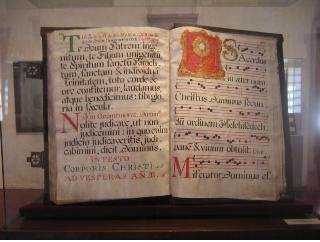 Te Deum Patrem inge
nitum, te Filium unigenitū
te Spiritum Sanctū Paracli
tum, sanctam & individuā
Trinitatem, toto corde &
ore confitemur, laudamus
atque benedicimus: tibi glo
ria in sæcula.
Nolite judicare, ut non
judicemini: in quo enim
judicio judicaveritis, judi
cabimini, dicit Dominus.
IN FESTO
CORPORIS CHRISTI
AD VESPERAS
Sacerdos
in æter num
Christus Dominus secun
dū ordinem Melchisedech
panē & vinum obtulit.
Miserator Dominus